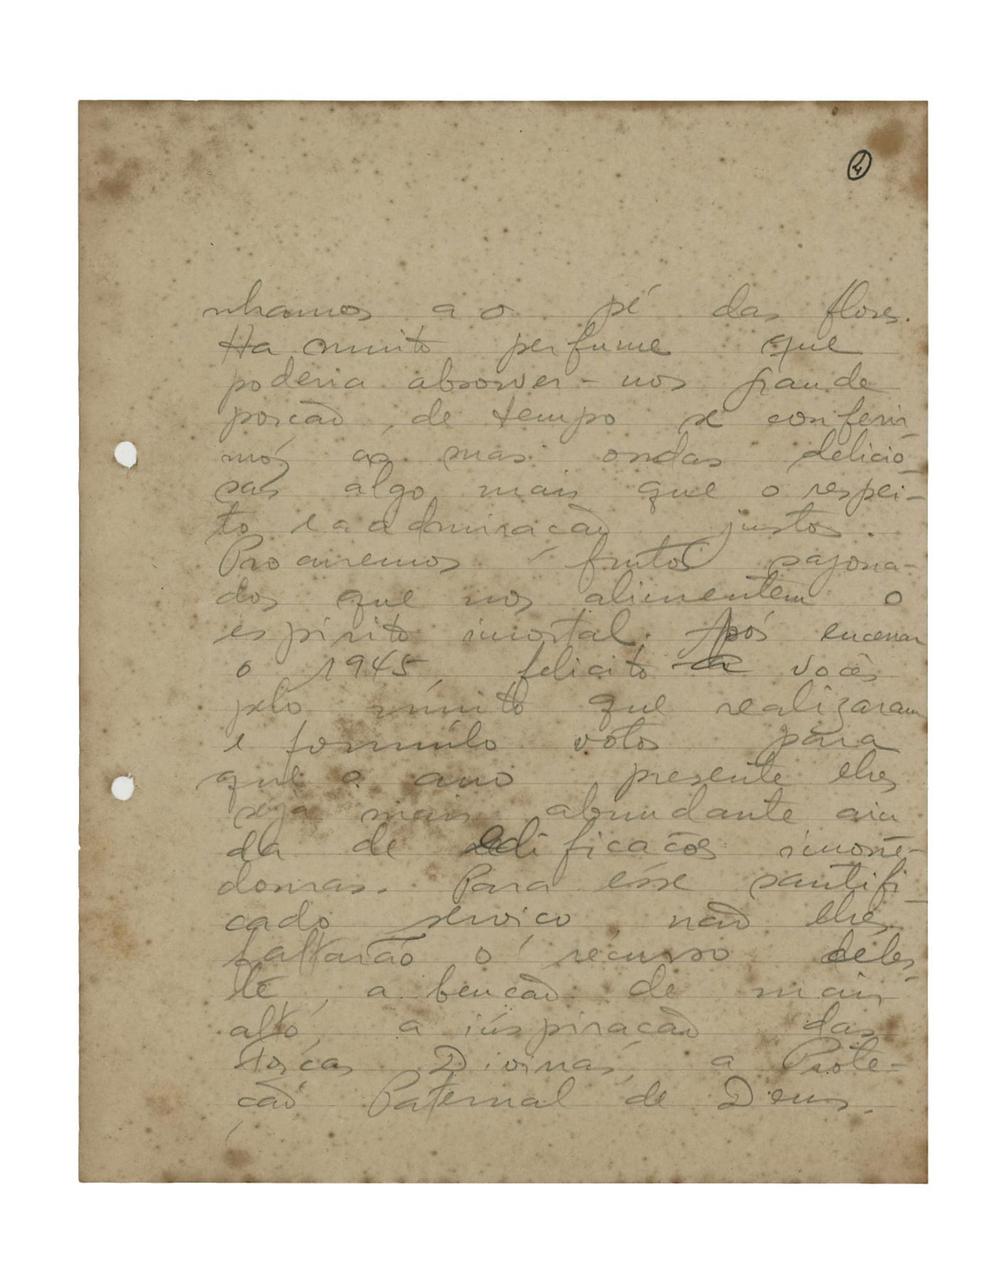 4
nhamos ao pé das flores.
Ha muito perfume que
poderia absorver-nos grande
porcão, de tempo se conferir
mos as suas ondas delicio-
sas algo mais que o respei-
to e a admiracão justos.
Procuremos frutos sazona-
dos que nos alimentem o
espirito imortal. Após encerrar
o 1945, felicito a vocês
pelo muito que realizaram
e formulo votos para
que o ano presente lhes
seja mais abundante ain
da de edificacões imorre-
douras. Para esse santifi
cado serviço não lhes
faltarão o recurso celes-
te, a bencão de mais
alto, a inspiracão das
Forças Divinas, a Prote-
cão Paternal de Deus.